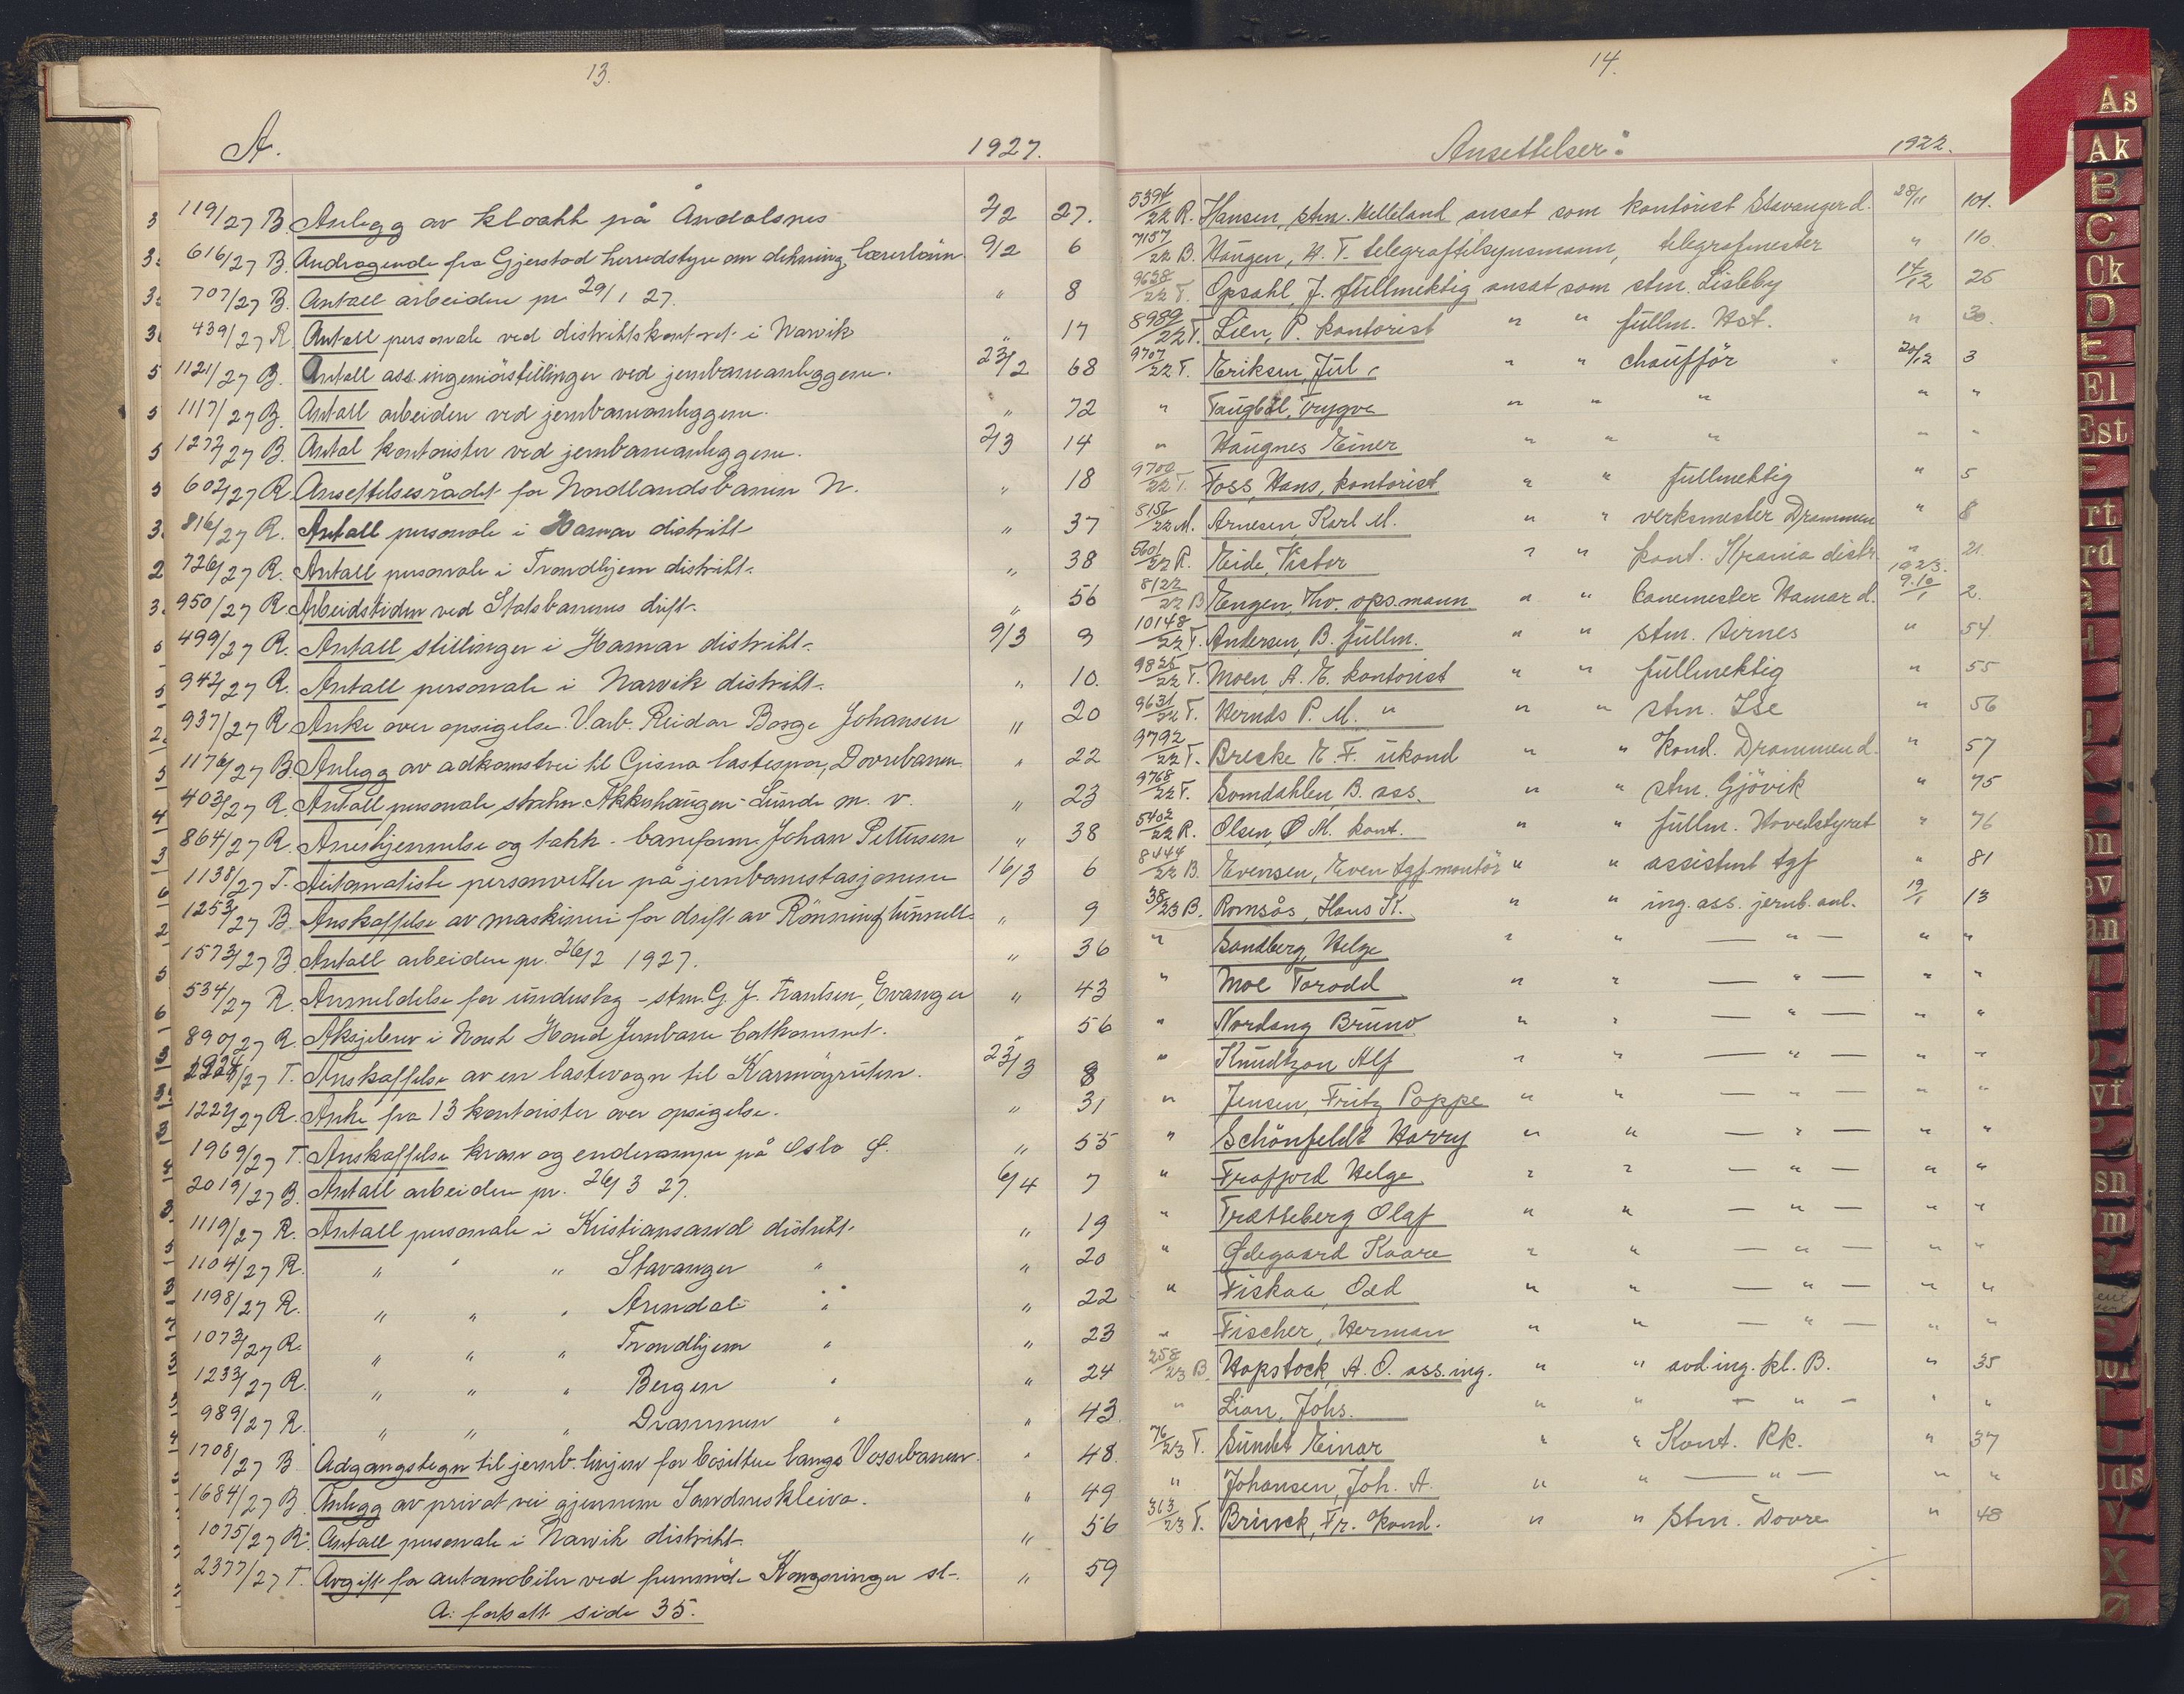 13.
A. 1927.
119/27 B. Anlegg av kloakk på Åndalsnes 2/2 27.
616/27 B. Andragende fra Gjerstad herredstyre om dekning, lærerlönn 9/2 6
707/27 B. Antall arbeidere pr. 29/1 27. " 8
439/27 R. Antall personale ved distriktskontoret i Narvik " 17
1121/27 B. Antall ass. ingeniörstillinger ved jernbaneanleggene. 23/2 68
1117/27 B. Antall arbeidere ved jernbaneanleggene. " 72
1277/27 B. Antal kontorister ved jernbaneanleggene. 2/3 14
602/27 R. Ansettelsesrådet for Nordlandsbanen N. " 18
816/27 R. Antall personale i Hamar distrikt " 37
726/27 R. Antall personale i Trondhjem distrikt. " 38
950/27 R. Arbeidstiden ved Statsbanenes drift. " 56
499/27 R. Antall stillinger i Hamar distrikt. 9/3 9
942/27 R. Antall personale i Narvik distrikt. " 10.
937/27 R. Anke over opsigelse. V.arb. Reidar Borge Johansen " 20
1176/27 B. Anlegg av adkomstvei til Gisna lastespor, Dovrebanen. " 22
403/27 R. Antall personale strekn. Akkerhaugen - Lunde m. v. " 23
864/27 R. Anerkjennelse og takk - baneform. Johan Pettersen " 38
1138/27 T. Automatiske personvekter på jernbanestasjonene 16/3 6
1253/27 B. Anskaffelse av maskineri for drift av Rönning tunnell. " 9
1573/27 B. Antall arbeidere pr. 26/2 1927. " 36
534/27 R. Anmeldelse for underslag - stm. G. J. Frantsen, Evanger " 43
890/27 R. Aksjebrev i Norsk Hoved Jernbane bortkommet. " 56
2224/27 T. Anskaffelse av en lastevogn til Karmöyruten. 23/3 8
1222/27 R. Anke fra 13 kontorister over opsigelse. " 31
1969/27 T. Anskaffelse kran og enderampe på Oslo Ø. " 55
2019/27 B. Antall arbeidere pr. 26/3 27. 6/4 7
1119/27 R. Antall personale i Kristiansand distrikt. " 19
1104/27 R. " " " Stavanger " " 20
1198/27 R. " " " Arendal " " 22
1073/27 R. " " " Trondhjem " " 23
1233/27 R. " " " Bergen " " 24
989/27 R. " " " Drammen " " 43
1708/27 B. Adgangstegn til jernb. linjen for bosittere langs Vossebanen. " 48.
1684/27 B. Anlegg av privat vei gjennem Sandneskleiva. " 49
1075/27 R. Antall personale i Narvik distrikt. " 56
2377/27 T. Avgift for automobiler ved fremmöte Kongsvinger st. " 59
A: fortsatt side 35.
14.
Ansettelser: 1922.
5394/22 R. Hansen, stm. Helleland ansat som kontorist Stavanger d. 28/11 101.
7157/22 B. Haugen, H. T. telegraftilsynsmann, telegrafmester " 110.
9638/22 T. Opsahl, J. fullmektig ansat som stm. Lisleby 14/12 25
8989/22 T. Lien, P. kontorist " " fullm. Hst. " 30.
9707/22 T. Eriksen, Jul. " " chaufför 20/12 3
" Taugböl, Trygve " " " " "
" Haugnes Einer " " " " "
9700/22 T. Foss, Hans, kontorist " " fullmektig " 5
8156/22 M. Arnesen, Karl M. " " verksmester Drammen " 8
5601/22 R. Eide, Victor " " kont. Krania distr. " 21.
1923.
8122/22 B Engen, Thv. ops.mann " " banemester Hamar d. 9.10/1 2.
10148/22 T. Andersen, B. fullm. " " stm. Aurnes " 54.
9825/22 T. Moen, A. E. kontorist " " fullmektig " 55
9631/22 T. Hernds P. M. " " " stm. Ise " 56
9792/22 T. Brecke E. F. ukond " " Kond. Drammen d. " 57
9768/22 T. Somdahlen, B. ass. " " stm. Gjövik " 75
5402/22 R. Olsen, O M. kont. " " fullm. Hovedstyret " 76
8444/22 B. Evensen, Even tgf. montör " " assistent tgf " 81
38/23 B. Romsås, Hans K. " " ing. ass. jernb. anl. 19/1 13
" Sandberg, Helge " " — " — " "
" Moe Torodd " " — " — " "
" Nordang Bruno " " — " — " "
" Knudtzon Alf " " — " — " "
" Jensen, Fritz Poppe " " — " — " "
" Schönfeldt Harry " " — " — " "
" Trafjord Helge " " — " — " "
" Trætteberg Olaf " " — " — " "
" Ødegaard Kaare " " — " — " "
" Fiskaa, Odd " " — " — " "
" Fischer, Herman " " — " — " "
258/23 B. Hopstock, A. O. ass. ing. " " avd. ing. kl. B. " 35
" Lian, Johs. " " — " — " "
76/23 T. Sundt Einar " " Kont. Rk. " 37
" Johansen, Joh. A. " " — " — " "
363/23 T. Brinck, Fr. kond. " " stm. Dovre " 48
As
Ak
B
C
Ck
D
E
El
Est
F